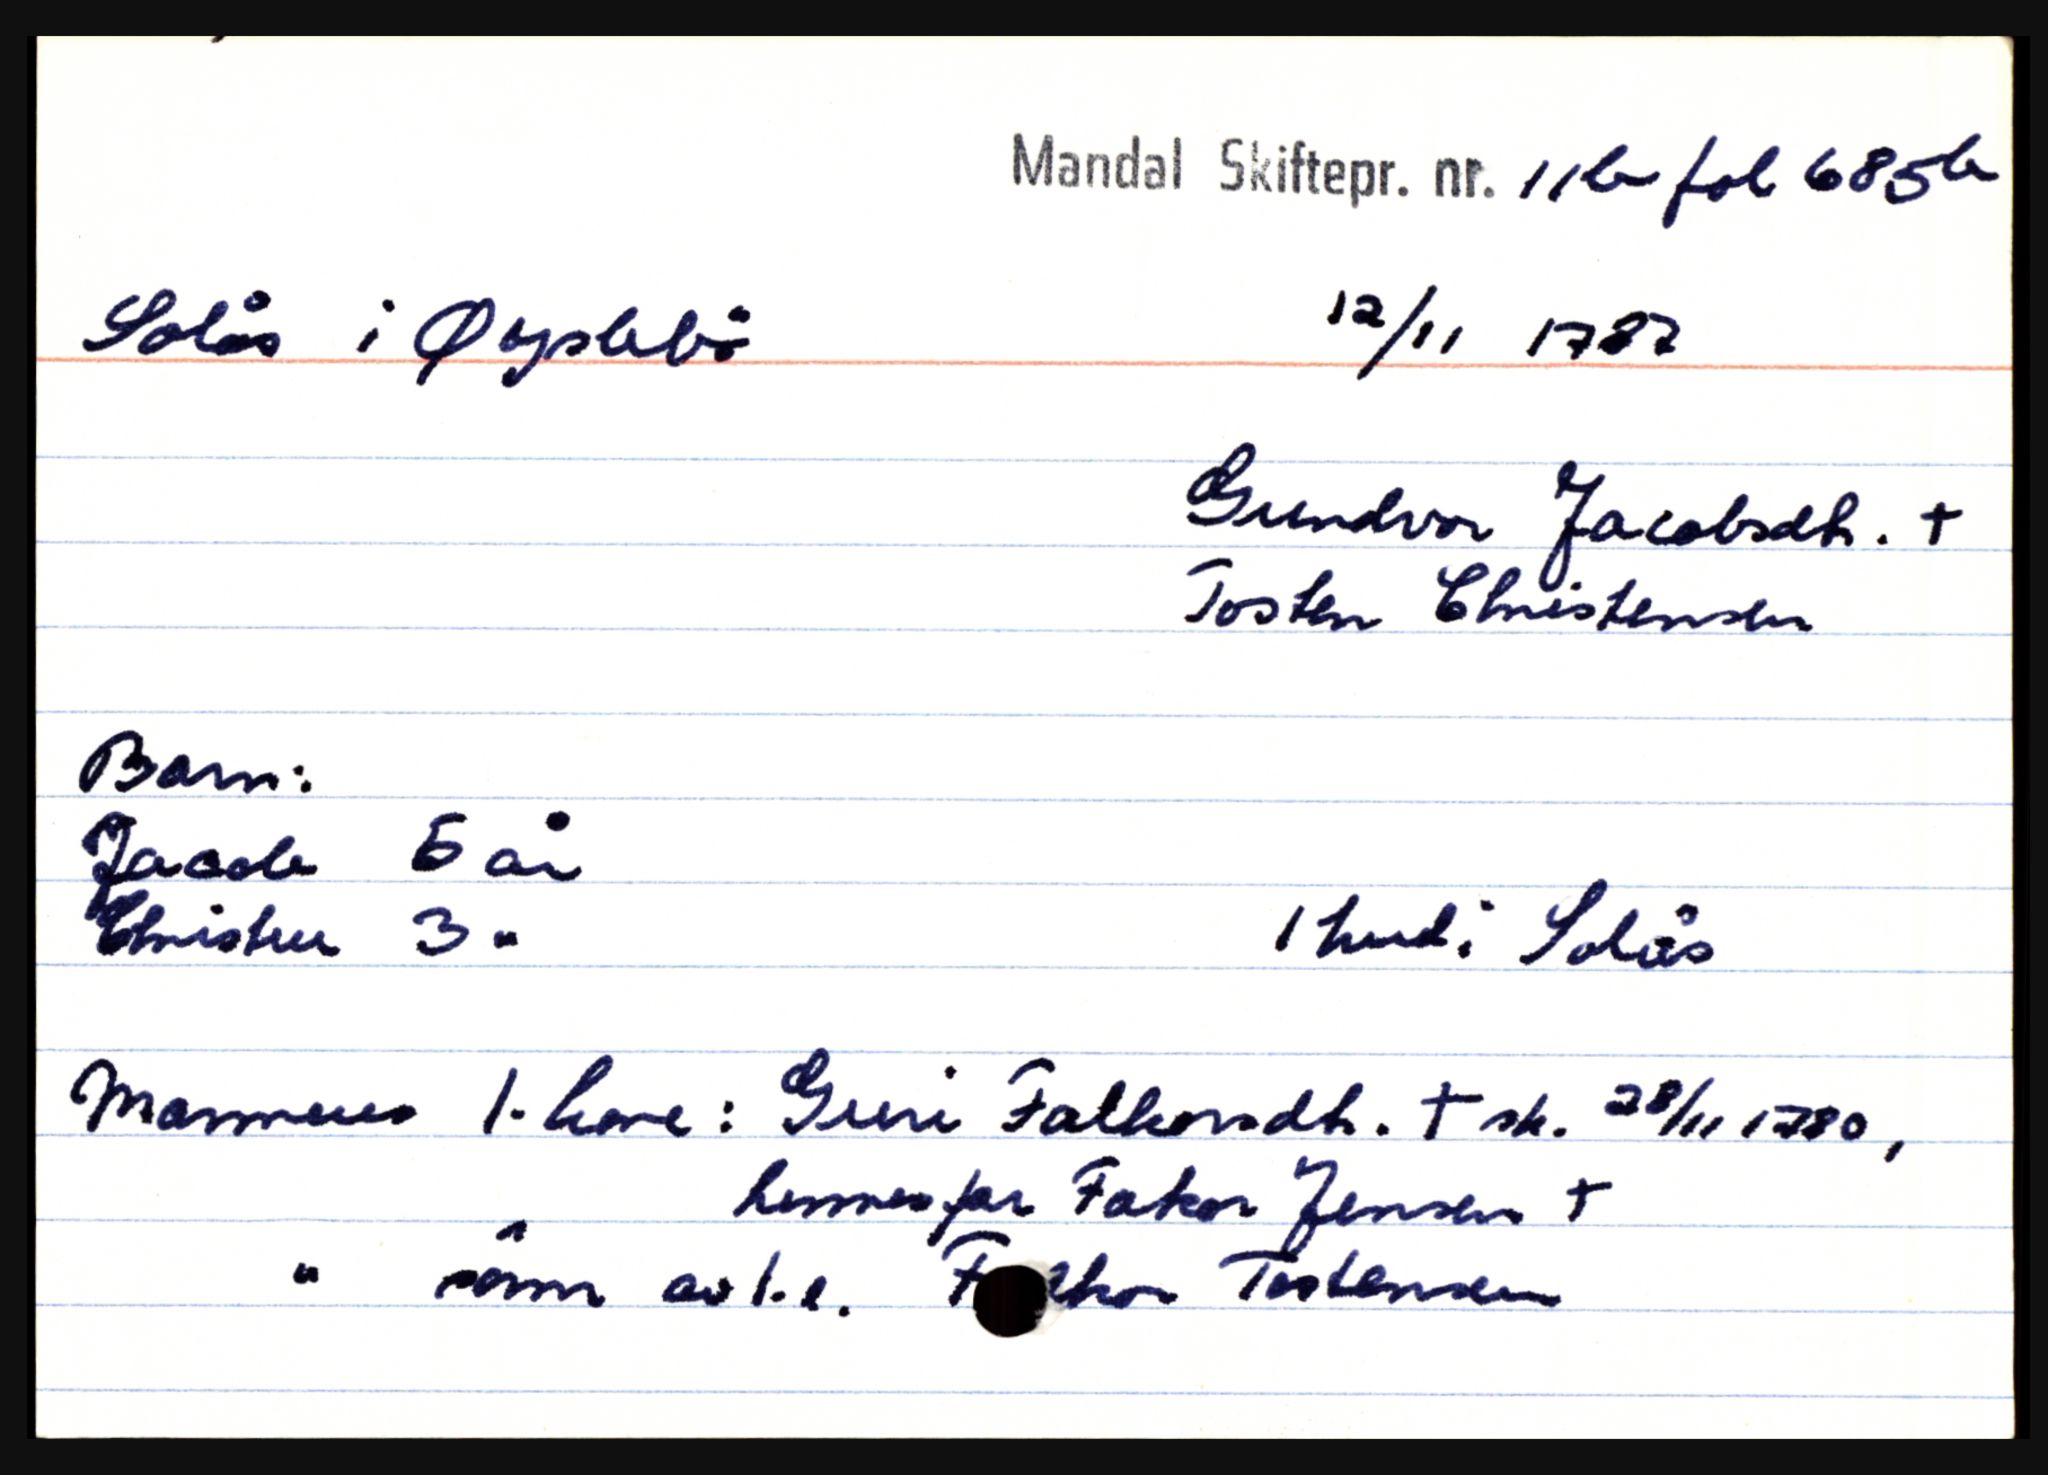 Mandal Skiftepr. nr. 11b fol 685b
Solås i Øyslebö 12/11 1787
Gundvor Jacobsdh. +
Tosten Christensen
Barn:
Jacob 5 år
Christen 3 "
1 hud i Solås
Mannens 1. kone: Guri Falkorsdh. + sk. 28/11 1780,
hennes far Fakor Jensen +
" sönn av 1. e. Falkor Tostensen